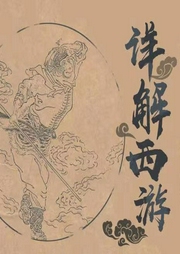 详解西游